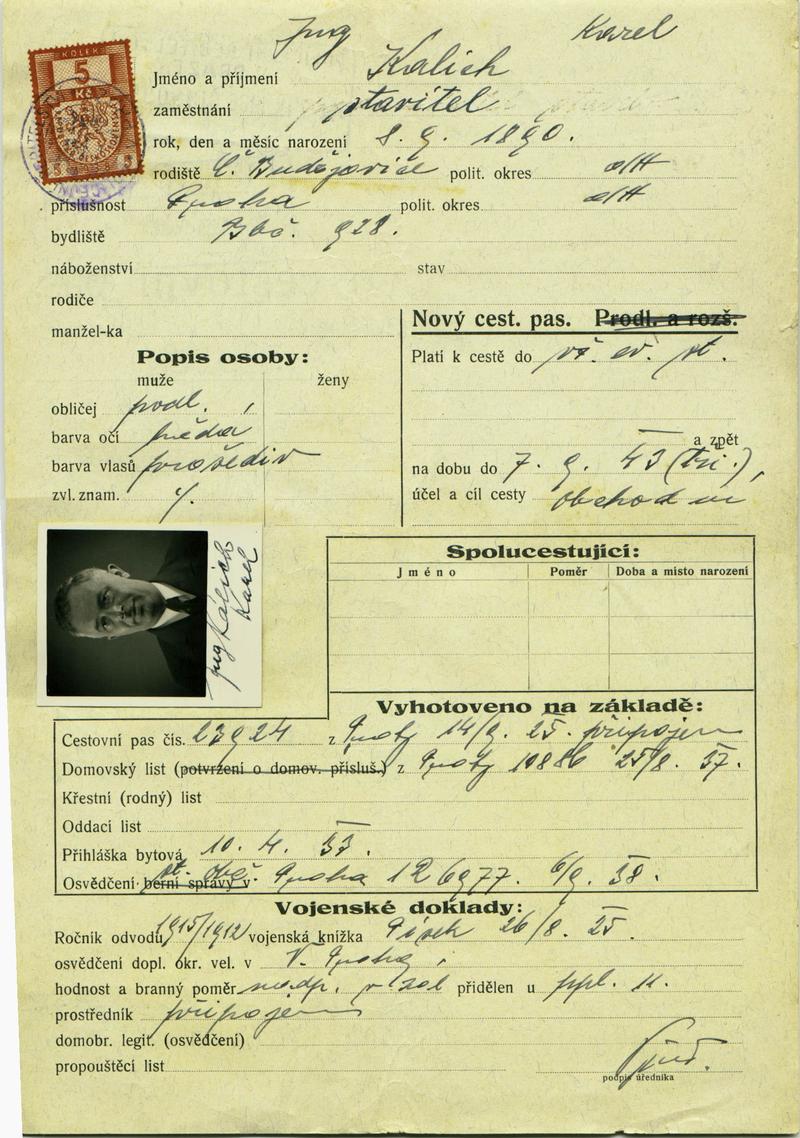 Ing Karel
KOLEK
5
Kč
Jméno a příjmení Kalich
zaměstnání stavitel
rok, den a měsíc narození 8. 9. 1890.
rodiště Č. Budějovice polit. okres
příslušnost Praha polit. okres
bydliště 928.
náboženství stav
rodiče
manžel-ka
Nový cest. pas. Prodl. a rozš.
Platí k cestě do vš. ev. st.
Popis osoby:
muže ženy
obličej podl.
barva očí hnědá
barva vlasů prošediv
zvl. znam. %.
a zpět
na dobu do 7. 9. 43 (tři.),
účel a cíl cesty obchodní
Ing Kalich
Karel
Spolucestující:
Jméno Poměr Doba a místo narození
Vyhotoveno na základě:
Cestovní pas čís. 23924 z Prahy 14/9. 25. připojen
Domovský list (potvrzení o domov. přísluš.) z Prahy 10886 25/8. 37.
Křestní (rodný) list
Oddací list
Přihláška bytová 10. 4. 33.
Osvědčení berní správy v st. obč. Praha 126977. 6/9. 38.
Vojenské doklady:
Ročník odvodu 1915/1912 vojenská knížka Písek 26/8. 25.
osvědčení dopl. okr. vel. v V. Prahy
hodnost a branný poměr v zál přidělen u ppl. 11.
prostředník připojen
domobr. legit. (osvědčení)
propouštěcí list
podpis úředníka